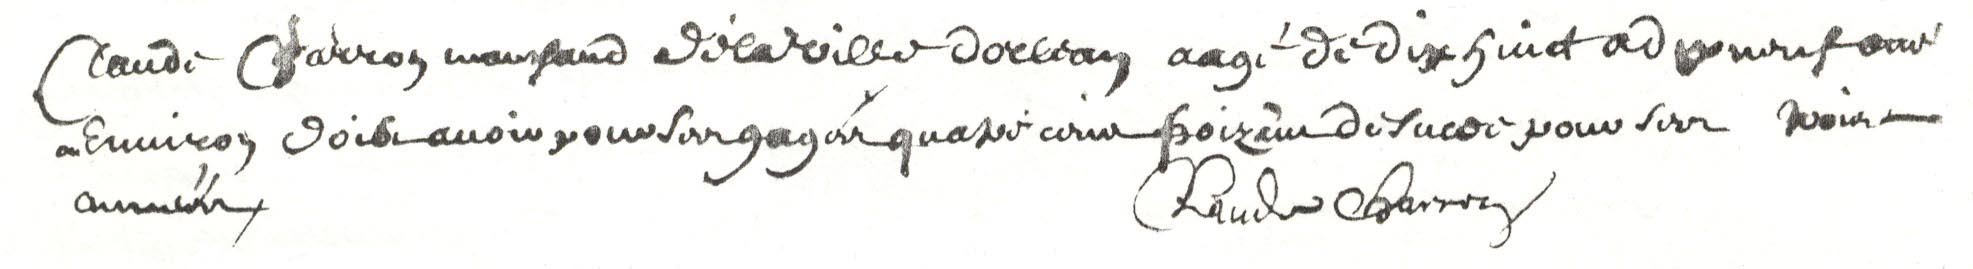 Claude Charron marchand de la ville dorlean aagé de dix huict a dixneuf ans
ou Environ doibt avoir pour ses gages quatre cens de sucre pour ses trois
années
Claude Charron